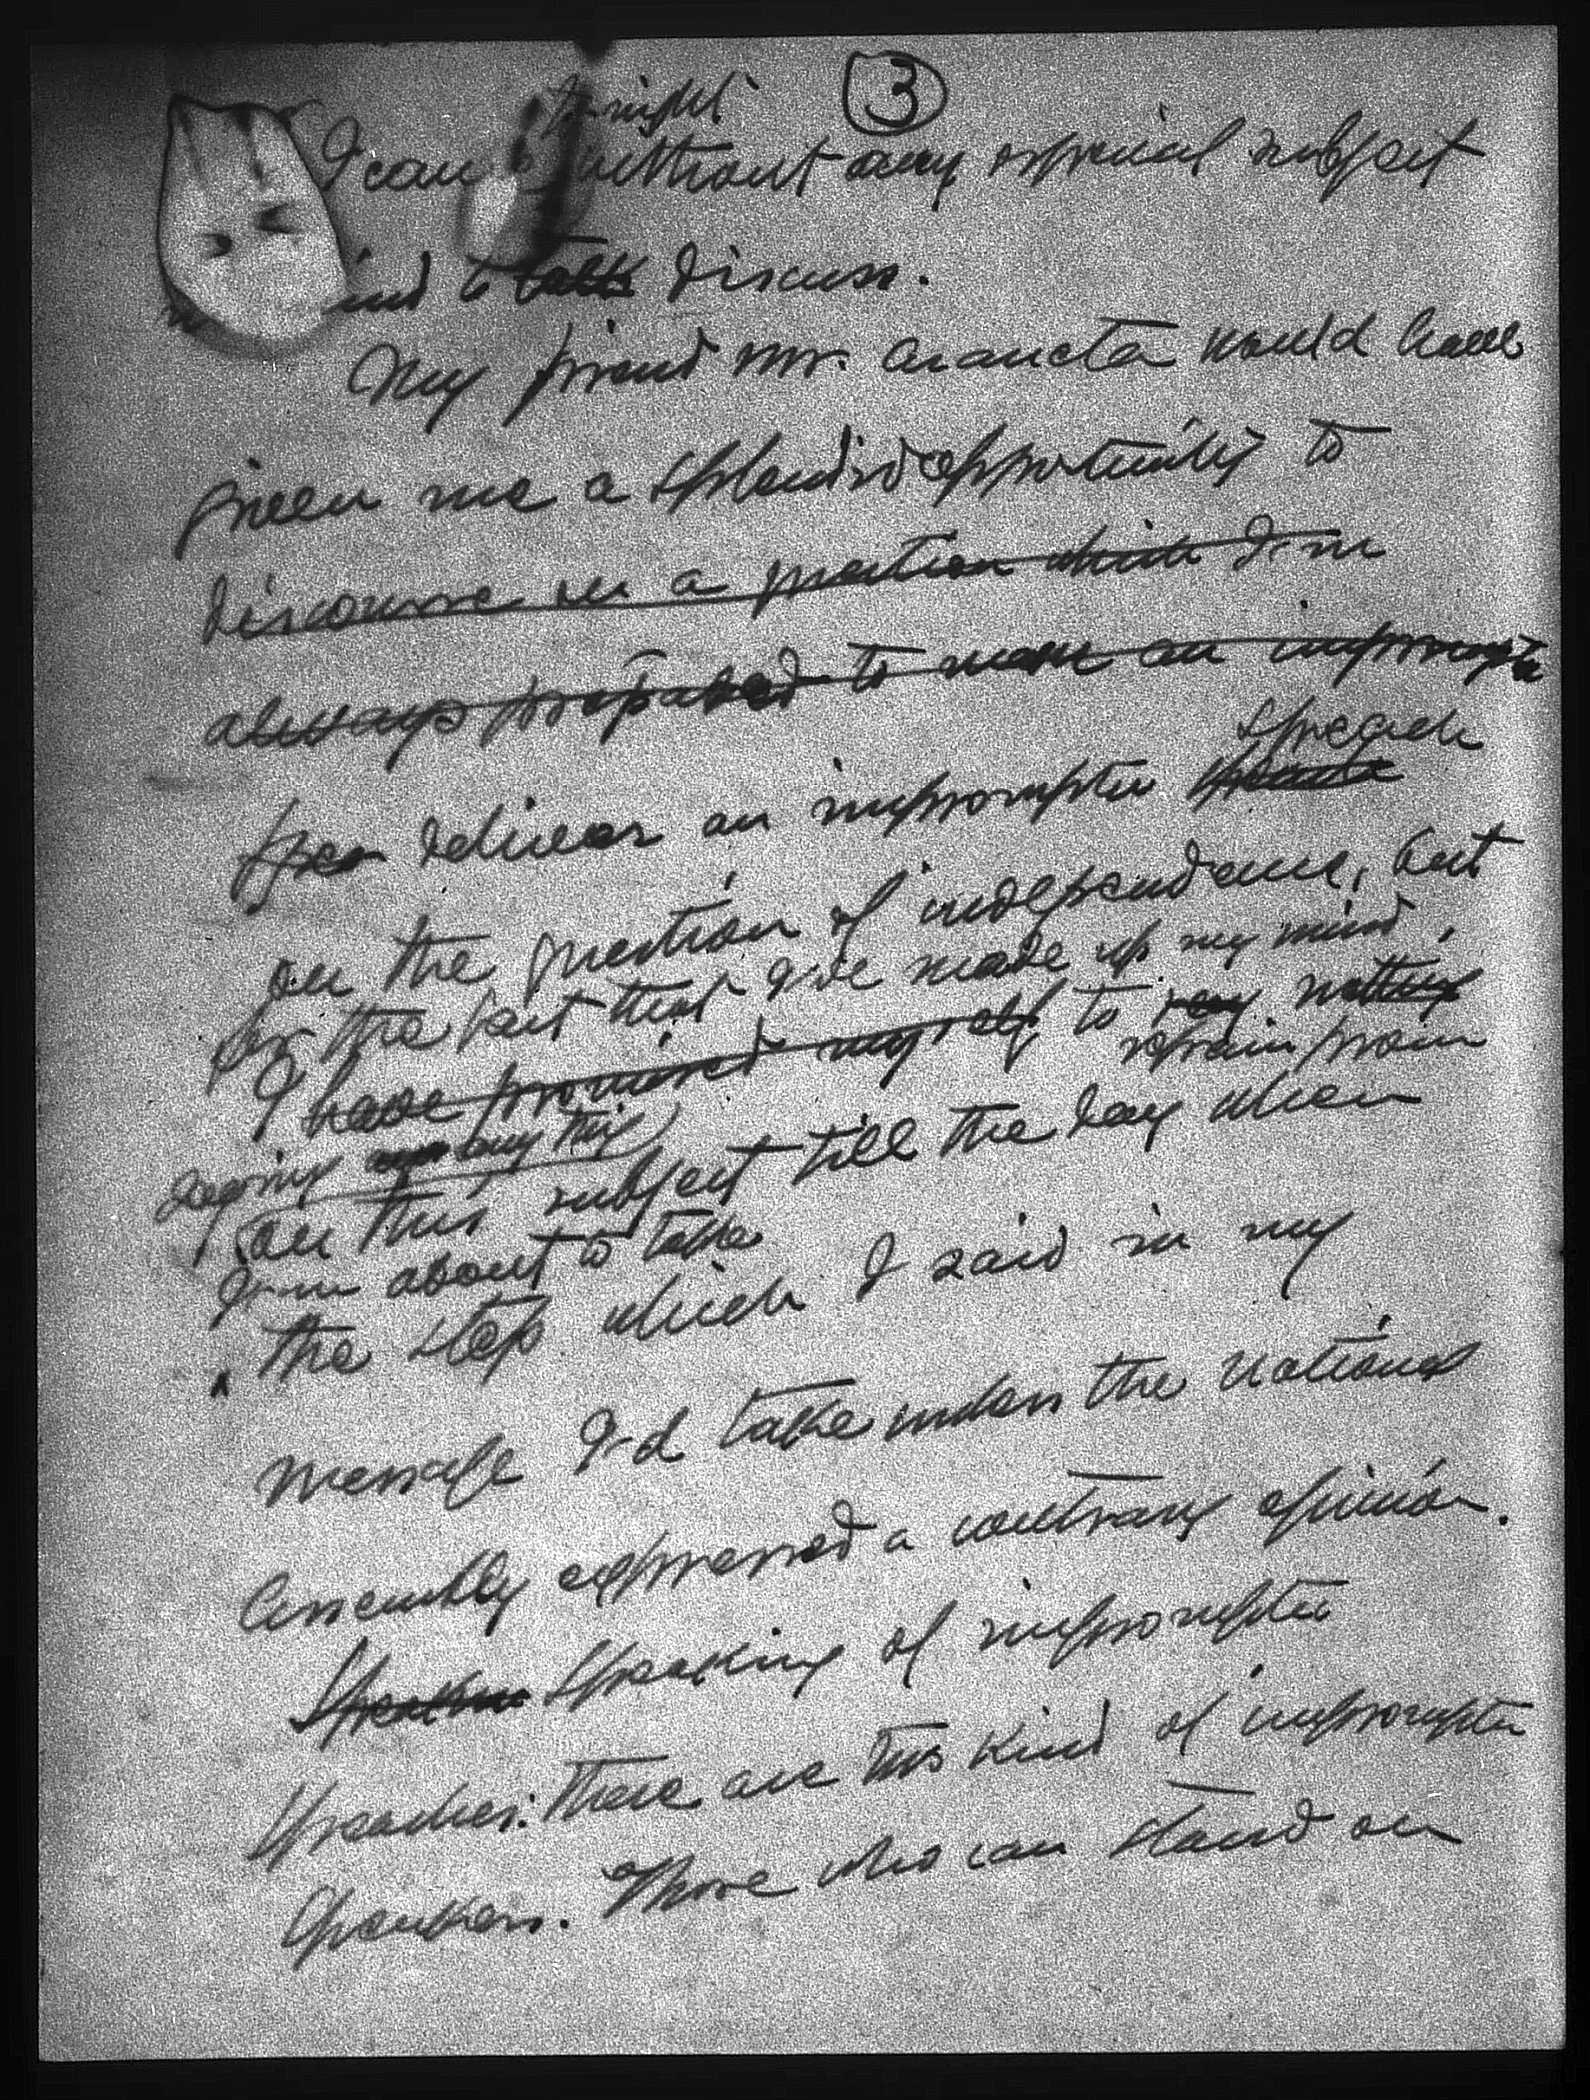 3
tonight
I can without any special subject
ind to talk discuss.
My friend Mr. Araneta would have
given me a splendid opportunity to
discourse on a question which I'm
always prepared to make an impromptu
deliver an impromptu speech
on the question of independence, but
for the fact that I've made up my mind,
I have promised myself to say nothing
refrain from
saying anything
on this subject till the day when
I'm about to take
the step which I said in my
message I'd take unless the National
Assembly expressed a contrary opinion.
Speaking of impromptu
speeches: there are two kind of impromptu
speakers. Those who can stand on